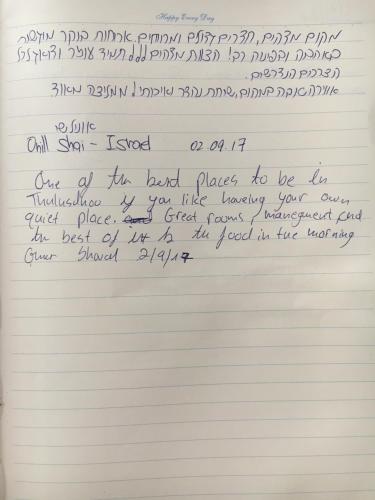 Happy Every Day
מקום מדהים, חדרים גדולים ומרווחים. ארוחת בוקר מוגשת
באהבה ובפינוק רב! הצוות מדהים!!! תמיד עוזר ודואג לכל
הצרכים הנדרשים.
אווירה טובה במקום, שירות נהדר ואיכותי! ממליצה מאוד
שי
Shai - Israel 02.09.17
One of the best places to be in
Thulusdhoo if you like haveing your own
quiet place. Great rooms, manegment and
the best of it is the food in the morning
Omer 2/9/17